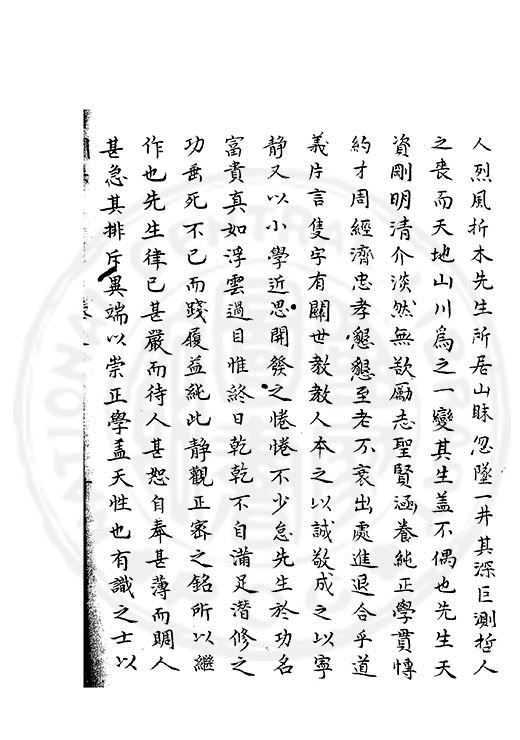 人烈風折木先生所居山脉忽墜一井其深巨測哲人
之喪而天地山川爲之一變其生盖不偶也先生天
資剛明清介淡然無欲勵志聖賢涵養純正學貫博
約才周經濟忠孝懇懇至老不衰出處進退合乎道
義片言隻字有關世教教人本之以誠敬成之以寧
静又以小學近思開發之惓惓不少怠先生於功名
富貴真如浮雲過目惟終日乾乾不自滿足潛修之
功垂死不已而踐履益純此靜觀正密之銘所以繼
作也先生律已甚嚴而待人甚恕自奉甚薄而賙人
甚急其排斥異端以崇正學盖天性也有識之士以
NATIONAL CENTRAL